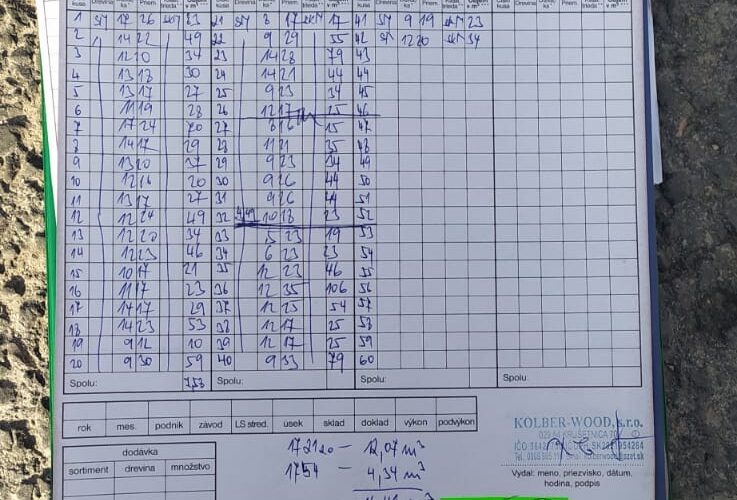 kusa Drevina ka Priem. trieda v m³ kusa Drevina ka Priem. trieda v m³ kusa Drevina ka Priem. trieda v m³ kusa Drevina ka Priem. trieda v m³
1 SM 17 26 83 21 SM 8 17 17 41 SM 9 19 23
2 14 22 49 22 9 29 55 42 SM 12 20 34
3 12 20 34 23 14 28 79 43
4 13 18 30 24 14 21 44 44
5 13 17 27 25 9 23 34 45
6 11 19 28 26 12 17 25 46
7 17 24 70 27 8 16 15 47
8 14 17 29 28 11 21 35 48
9 13 20 37 29 9 23 34 49
10 12 16 20 30 9 26 44 50
11 13 17 27 31 9 26 44 51
12 12 24 49 32 10 18 23 52
13 12 20 34 33 5 23 19 53
14 12 23 46 34 6 23 23 54
15 10 17 21 35 12 23 46 55
16 11 17 23 36 12 35 106 56
17 14 17 29 37 12 25 54 57
18 14 23 53 38 12 17 25 58
19 9 12 10 39 12 17 25 59
20 9 30 59 40 9 33 79 60
Spolu: 7,53 Spolu: Spolu: Spolu:
rok mes. podnik závod LS stred. úsek sklad doklad výkon podvýkon
dodávka
sortiment drevina množstvo
172120 – 12,07 m³
1754 – 4,34 m³
KOLBER-WOOD, s.r.o.
Vydal: meno, priezvisko, dátum,
hodina, podpis